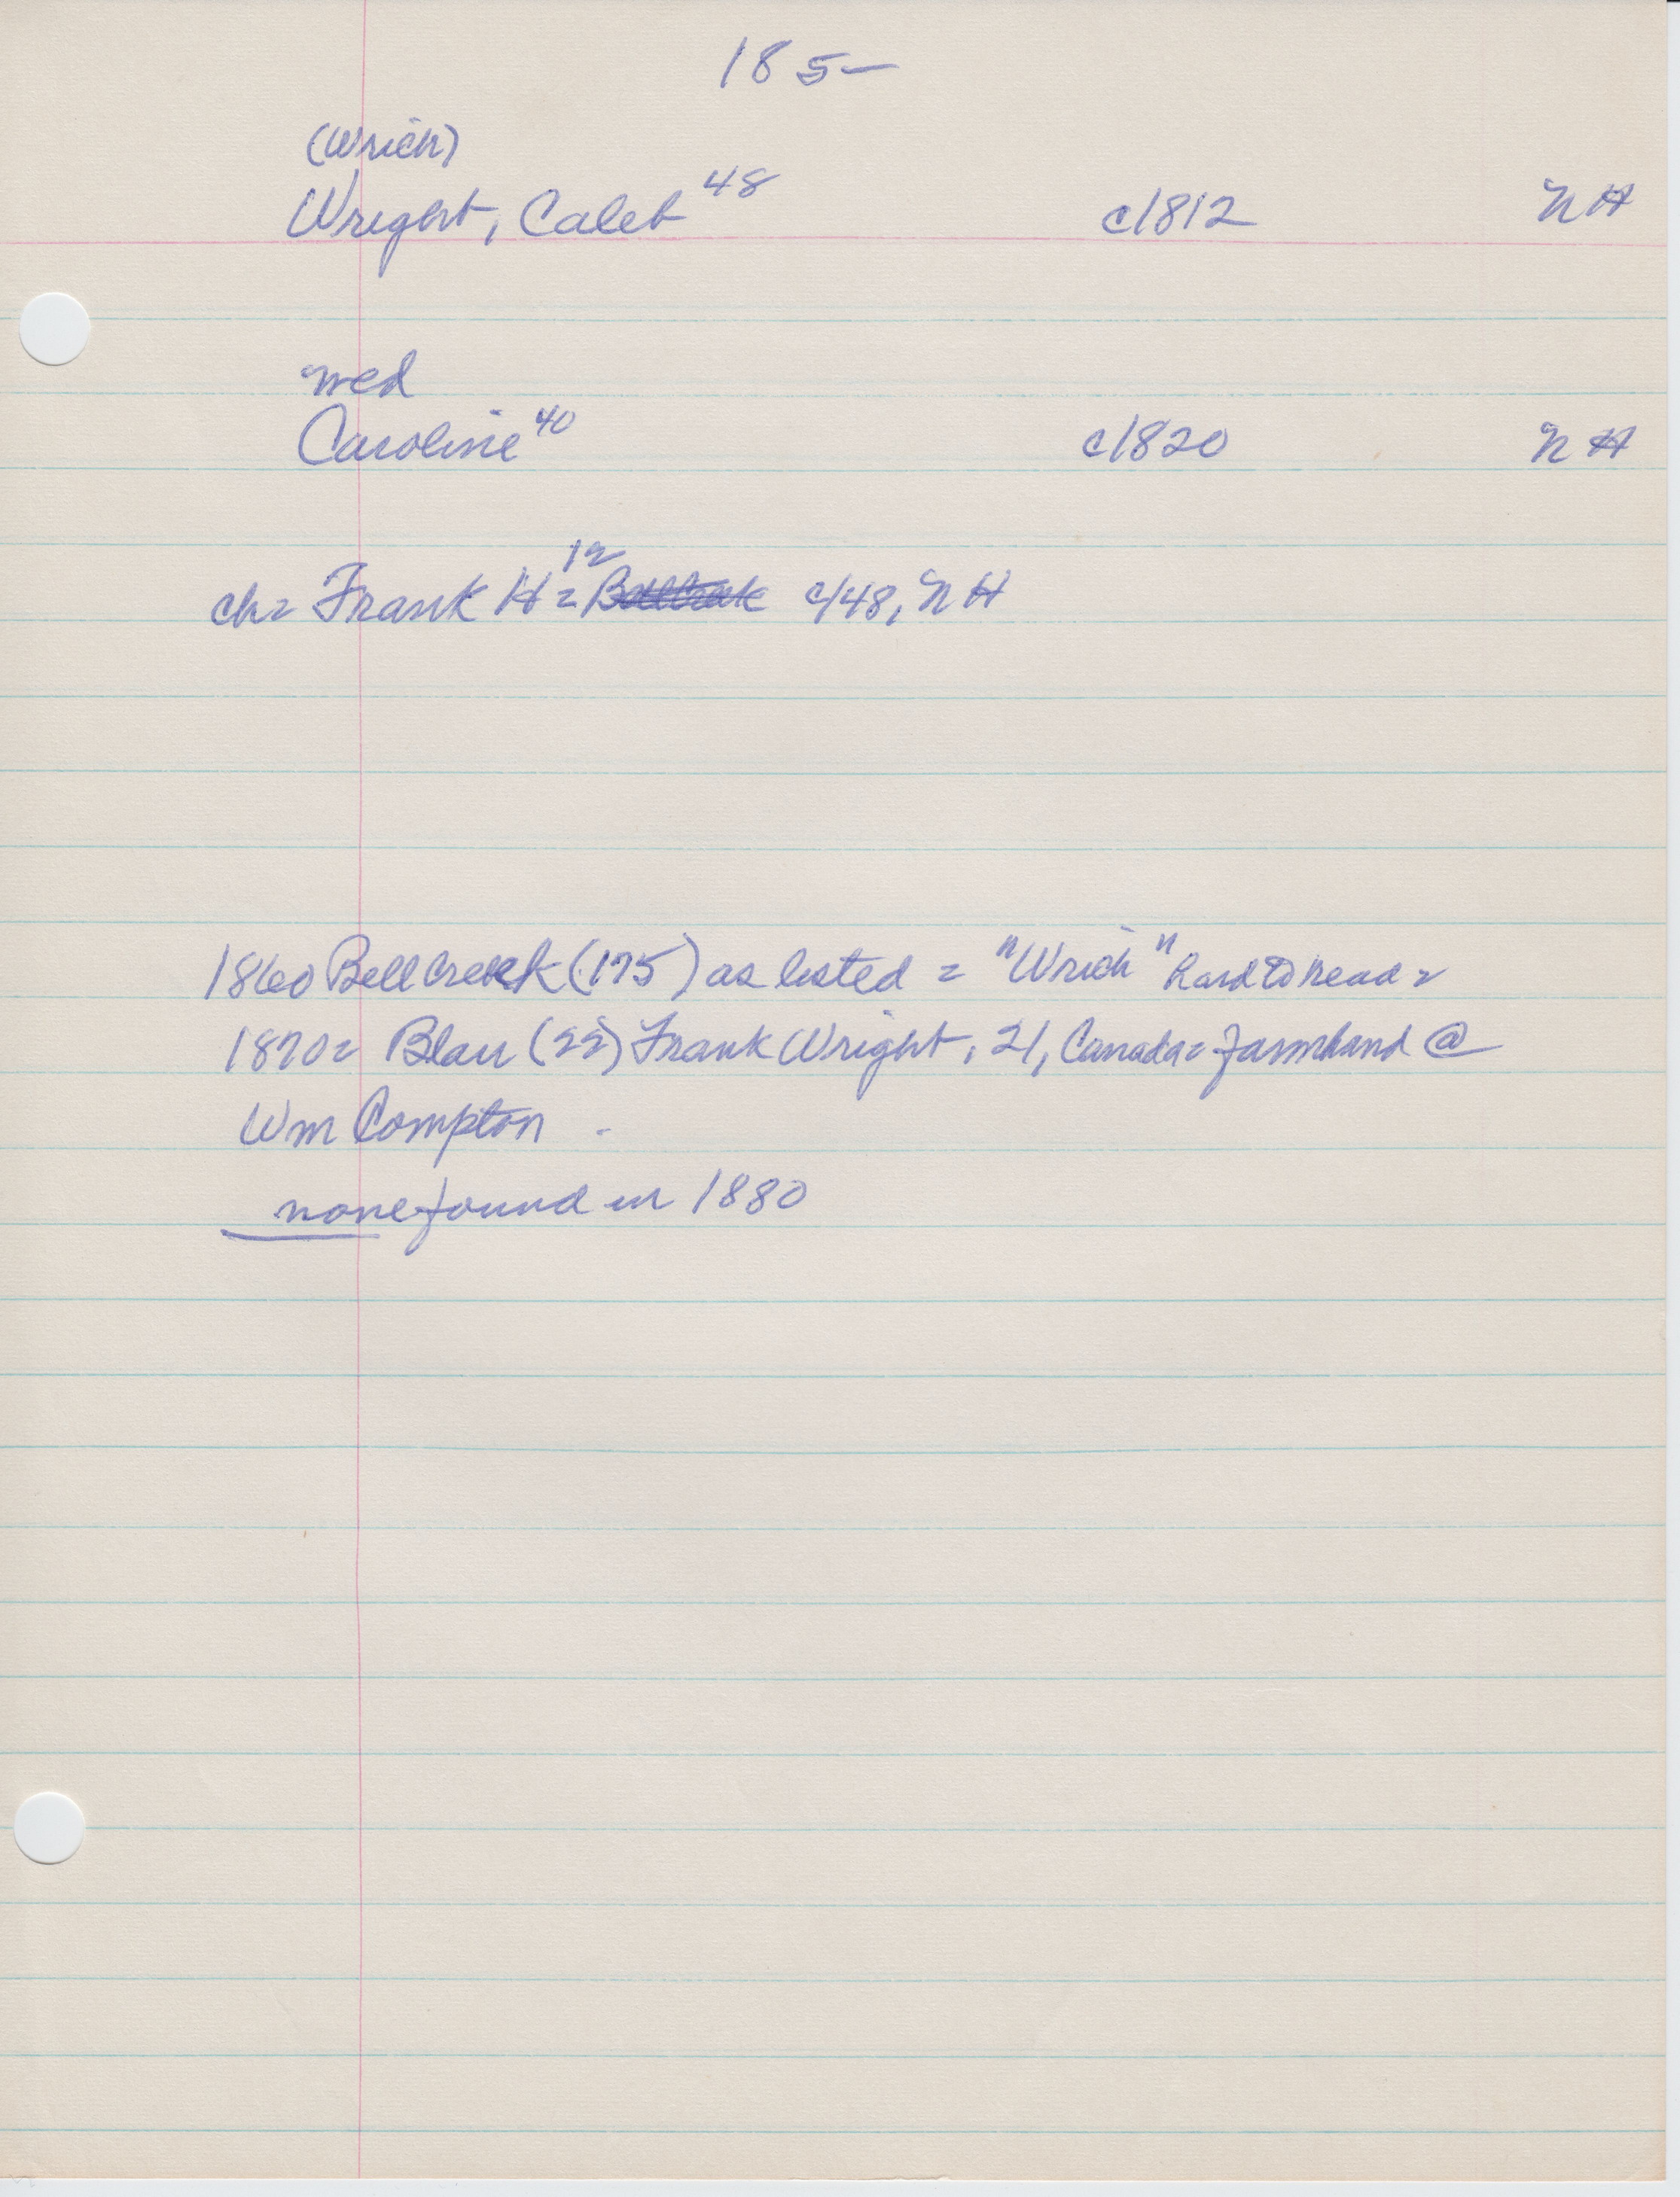 185-
(Wrich)
Wright, Caleb 48 c1812 NH
wed
Caroline 40 c1820 NH
ch= Frank H 12 = c/48, NH
1860 Bell Creek (175) as listed = "Wrich" hard to read =
1870= Blair (22) Frank Wright, 21, Canada= farmhand @
Wm Compton
none found in 1880